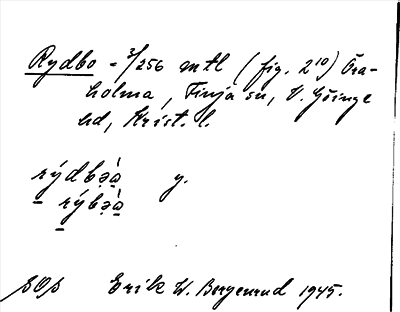 Rydbo = 3/256 mtl (fig. 2¹⁰) Öra-
holma, Finja sn, V. Göinge
hd, Krist. l.
rýdbə̣à̱ y.
rýbə̣à̱
SOS Erik W. Borgenrud 1945.